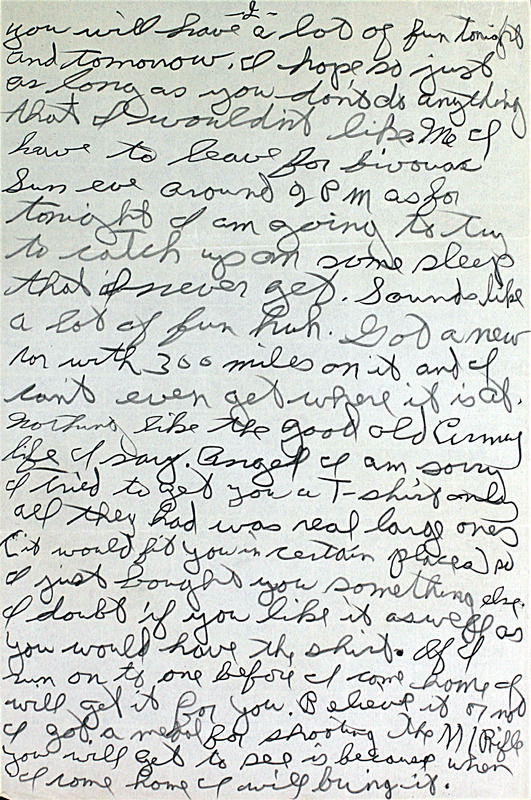 -2-
you will have a lot of fun tonight
and tomorrow. I hope so just
as long as you don't do anything
that I wouldn't like. Me I
have to leave for bivouac
Sun eve around 9 PM as for
tonight I am going to try
to catch up on some sleep
that I never get. Sounds like
a lot of fun huh. Got a new
car with 300 miles on it and I
can't even get where it is at.
Nothing like the good old Army
life I say. Angel I am sorry
I tried to get you a T-shirt only
all they had was real large ones
(it would fit you in certain places) so
I just bought you something else.
I doubt if you like it as well as
you would have the shirt. If I
run on to one before I come home I
will get it for you. Believe it or not
I got a medal for shooting the M1 Rifle
you will get to see is because when
I come home I will bring it.